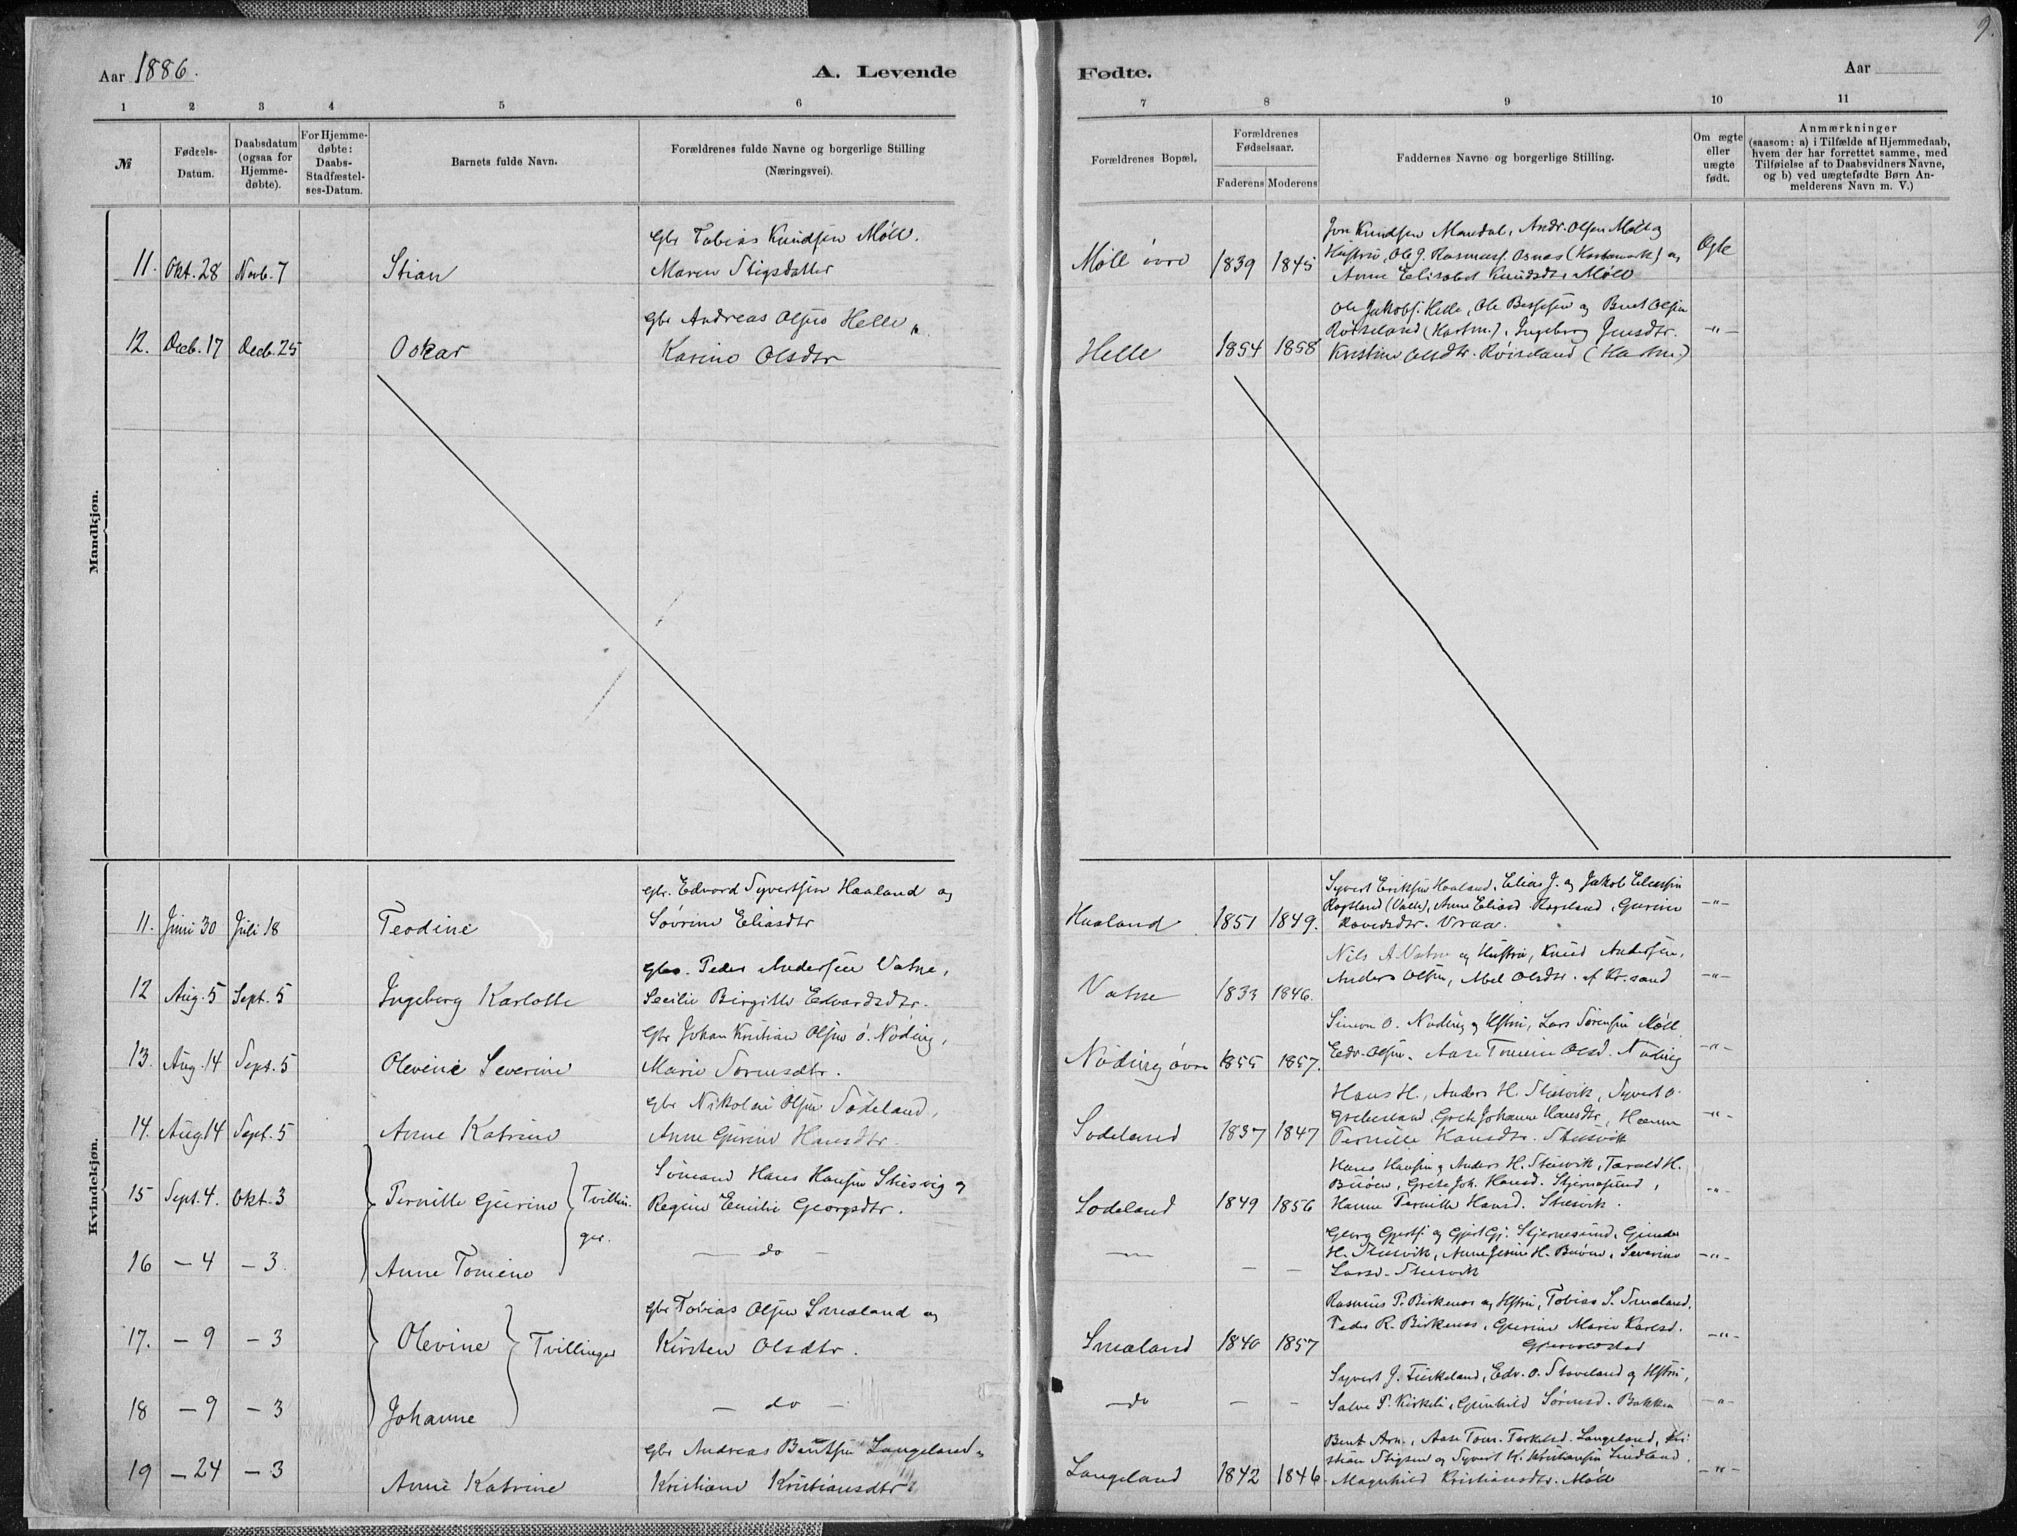 9.
Aar 1886.
A. Levende
Fødte.
Aar
1 2 3 4 5 6
7 8 9 10 11
№
Fødsels-
Datum.
Daabsdatum
(ogsaa for
Hjemme-
døbte).
For Hjemme-
døbte:
Daabs-
Stadfæstel-
ses-Datum.
Barnets fulde Navn.
Forældrenes fulde Navne og borgerlige Stilling
(Næringsvei).
Forældrenes Bopæl.
Forældrenes
Fødselsaar.
Faderens Moderens
Faddernes Navne og borgerlige Stilling.
Om ægte
eller
uægte
født.
Anmærkninger
(saasom: a) i Tilfælde af Hjemmedaab,
hvem der har forrettet samme, med
Tilføielse af to Daabsvidners Navne,
og b) ved uægtefødte Børn An-
melderens Navn m. V.)
Mandkjøn.
11. Okt. 28 Novb. 7 Stian
Gbr Tobias Knudsen Møll.
Maren Stigsdatter
Møll øvre 1839 1845
Jon Knudsen Mandal, Andr. Olsen Møll og
Hustru, Ole J. Rasmuss. Osnas (Hartmark) og
Anne Elisabet Knudsdtr Møll
Ægte
12. Decb. 17 Decb. 25 Oskar
Gbr Andreas Olsen Helle
Karine Olsdtr
Helle 1854 1858
Ole Jakobs. Helle, Ole Berntsen og Bent Olsen
Røiseland (Hartm.), Ingeborg Jensdtr.
Kristine Olsdtr. Røiseland (Hartm.)
–"–
Kvindekjøn.
11. Juni 30 Juli 18 Teodine
Gbr. Edvard Syvertsen Haaland og
Sørine Eliasdtr
Haaland 1851 1849.
Syvert Eriksen Haaland, Elias J. og Jakob Eliassen
Rogsland (Valle), Anne Eliasd. Rogsland, Gurine
Davidsdtr. Vraa.
–"–
12 Aug. 5 Sept. 5 Ingeborg Karlotte
Gbr. Peder Andersen Vatne,
Secilie Birgitte Edvardsdtr.
Vatne 1833 1846.
Nils A. Vatne og Hustru, Knud Andersen,
Anders Olsen, Abel Olsdtr. af Kr.sand
–"–
13. Aug. 14 Sept. 5 Olevine Severine
Gbr Johan Kristian Olsen ø. Nøding,
Marie Sørensdtr.
Nøding øvre 1855 1857.
Simon O. Nøding og Hstru, Lars Sørensen Møll
Edv. Olsen. Aase Tomine Olsd. Nøding
–"–
14. Aug 14 Sept. 5 Anne Katrine
Gbr Nikolai Olsen Sodeland,
Anne Gurine Hansdtr.
Sodeland 1837 1847
Hans H., Anders H. Stusvik, Syvert O.
Grebesland Grete Johanne Hansdtr, Hanne
Pernille Hansdtr. Stusvik
–"–
15 Sept. 4. Okt. 3 Pernille Gurine Tvillin-
ger.
Sømand Hans Hansen Stusvig og
Regine Emilie Georgsdtr.
Sodeland 1849 1856
Hans Hansen og Anders H. Stusvik, Tarald H.
Buøen, Grete Joh. Hansd. Stjernesund,
Hanne Pernille Hansd. Stusvik.
–"–
16 – 4 – 3. Anne Tomine
– do –
–"– – –
Georg Gjertss. og Gjert Gj. Stjernesund, Gunder
H. Stusvik, Anne Jesine H. Buøen, Severine
Larsd. Stusvik
–"–
17. – 9 – 3 Olevine Tvillinger
Gbr Tobias Olsen Smaland og
Kirsten Olsdtr.
Smaland 1840 1857
Rasmus P. Birkenes og Hstru, Tobias S. Smaland,
Peder R. Birkenes, Gurine Marie Karlsd.
–"–
18 – 9 – 3 Johanne
– do –
– do – –
Syvert J. Fuskeland, Edv. O. Stoveland og Hstru,
Salve P. Kirkeli, Gunhild Sørensd. Bakken
–"–
19 – 24 – 3 Anne Katrine
Gbr Andreas Bentsen Langeland
Kristiane Kristiansdtr
Langeland 1842 1846
Bent Arn., Aase Tom. Terkelsd. Langeland, Kri-
stian Stigsen og Syvert K. Kristiansen Lindland.
Magnhild Kristiansdtr. Møll
–"–